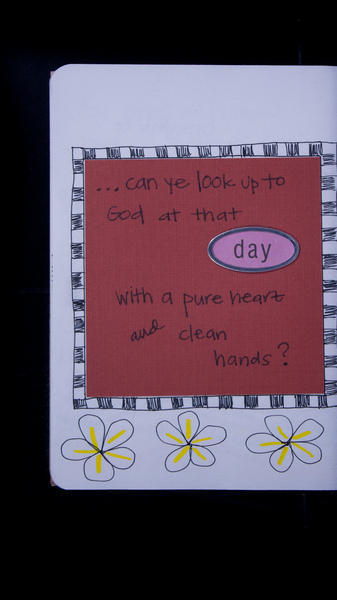 ...can ye look up to
God at that
day
with a pure heart
and clean
hands?